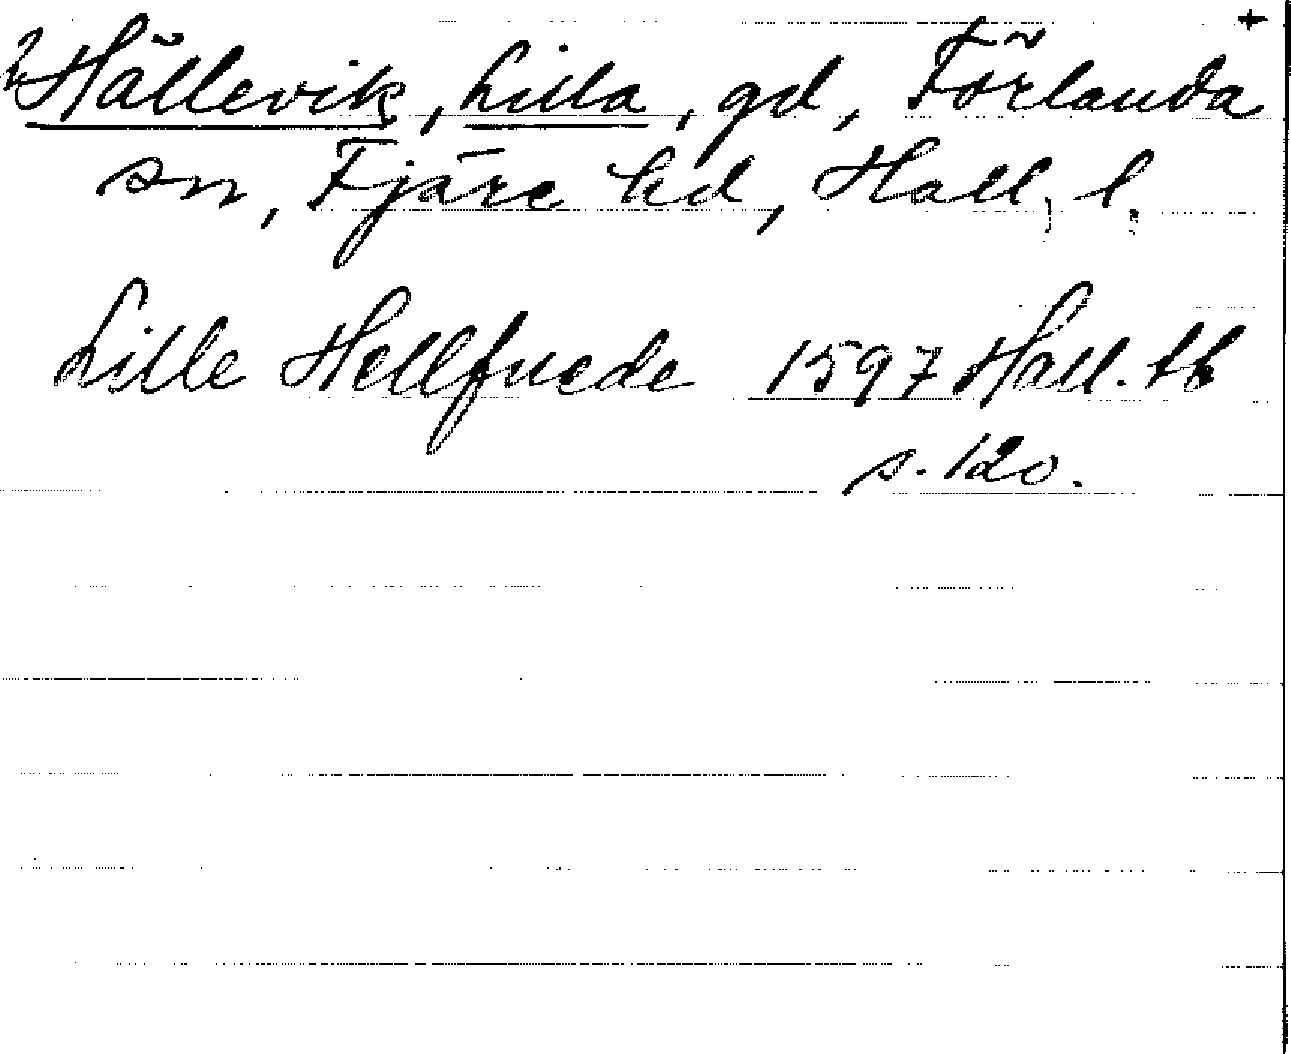 +
Hällevik, Lilla, gd, Förlanda
sn, Fjäre hd, Hall, l.
Lille Hellfuede 1597 Hall. tb
s. 120.